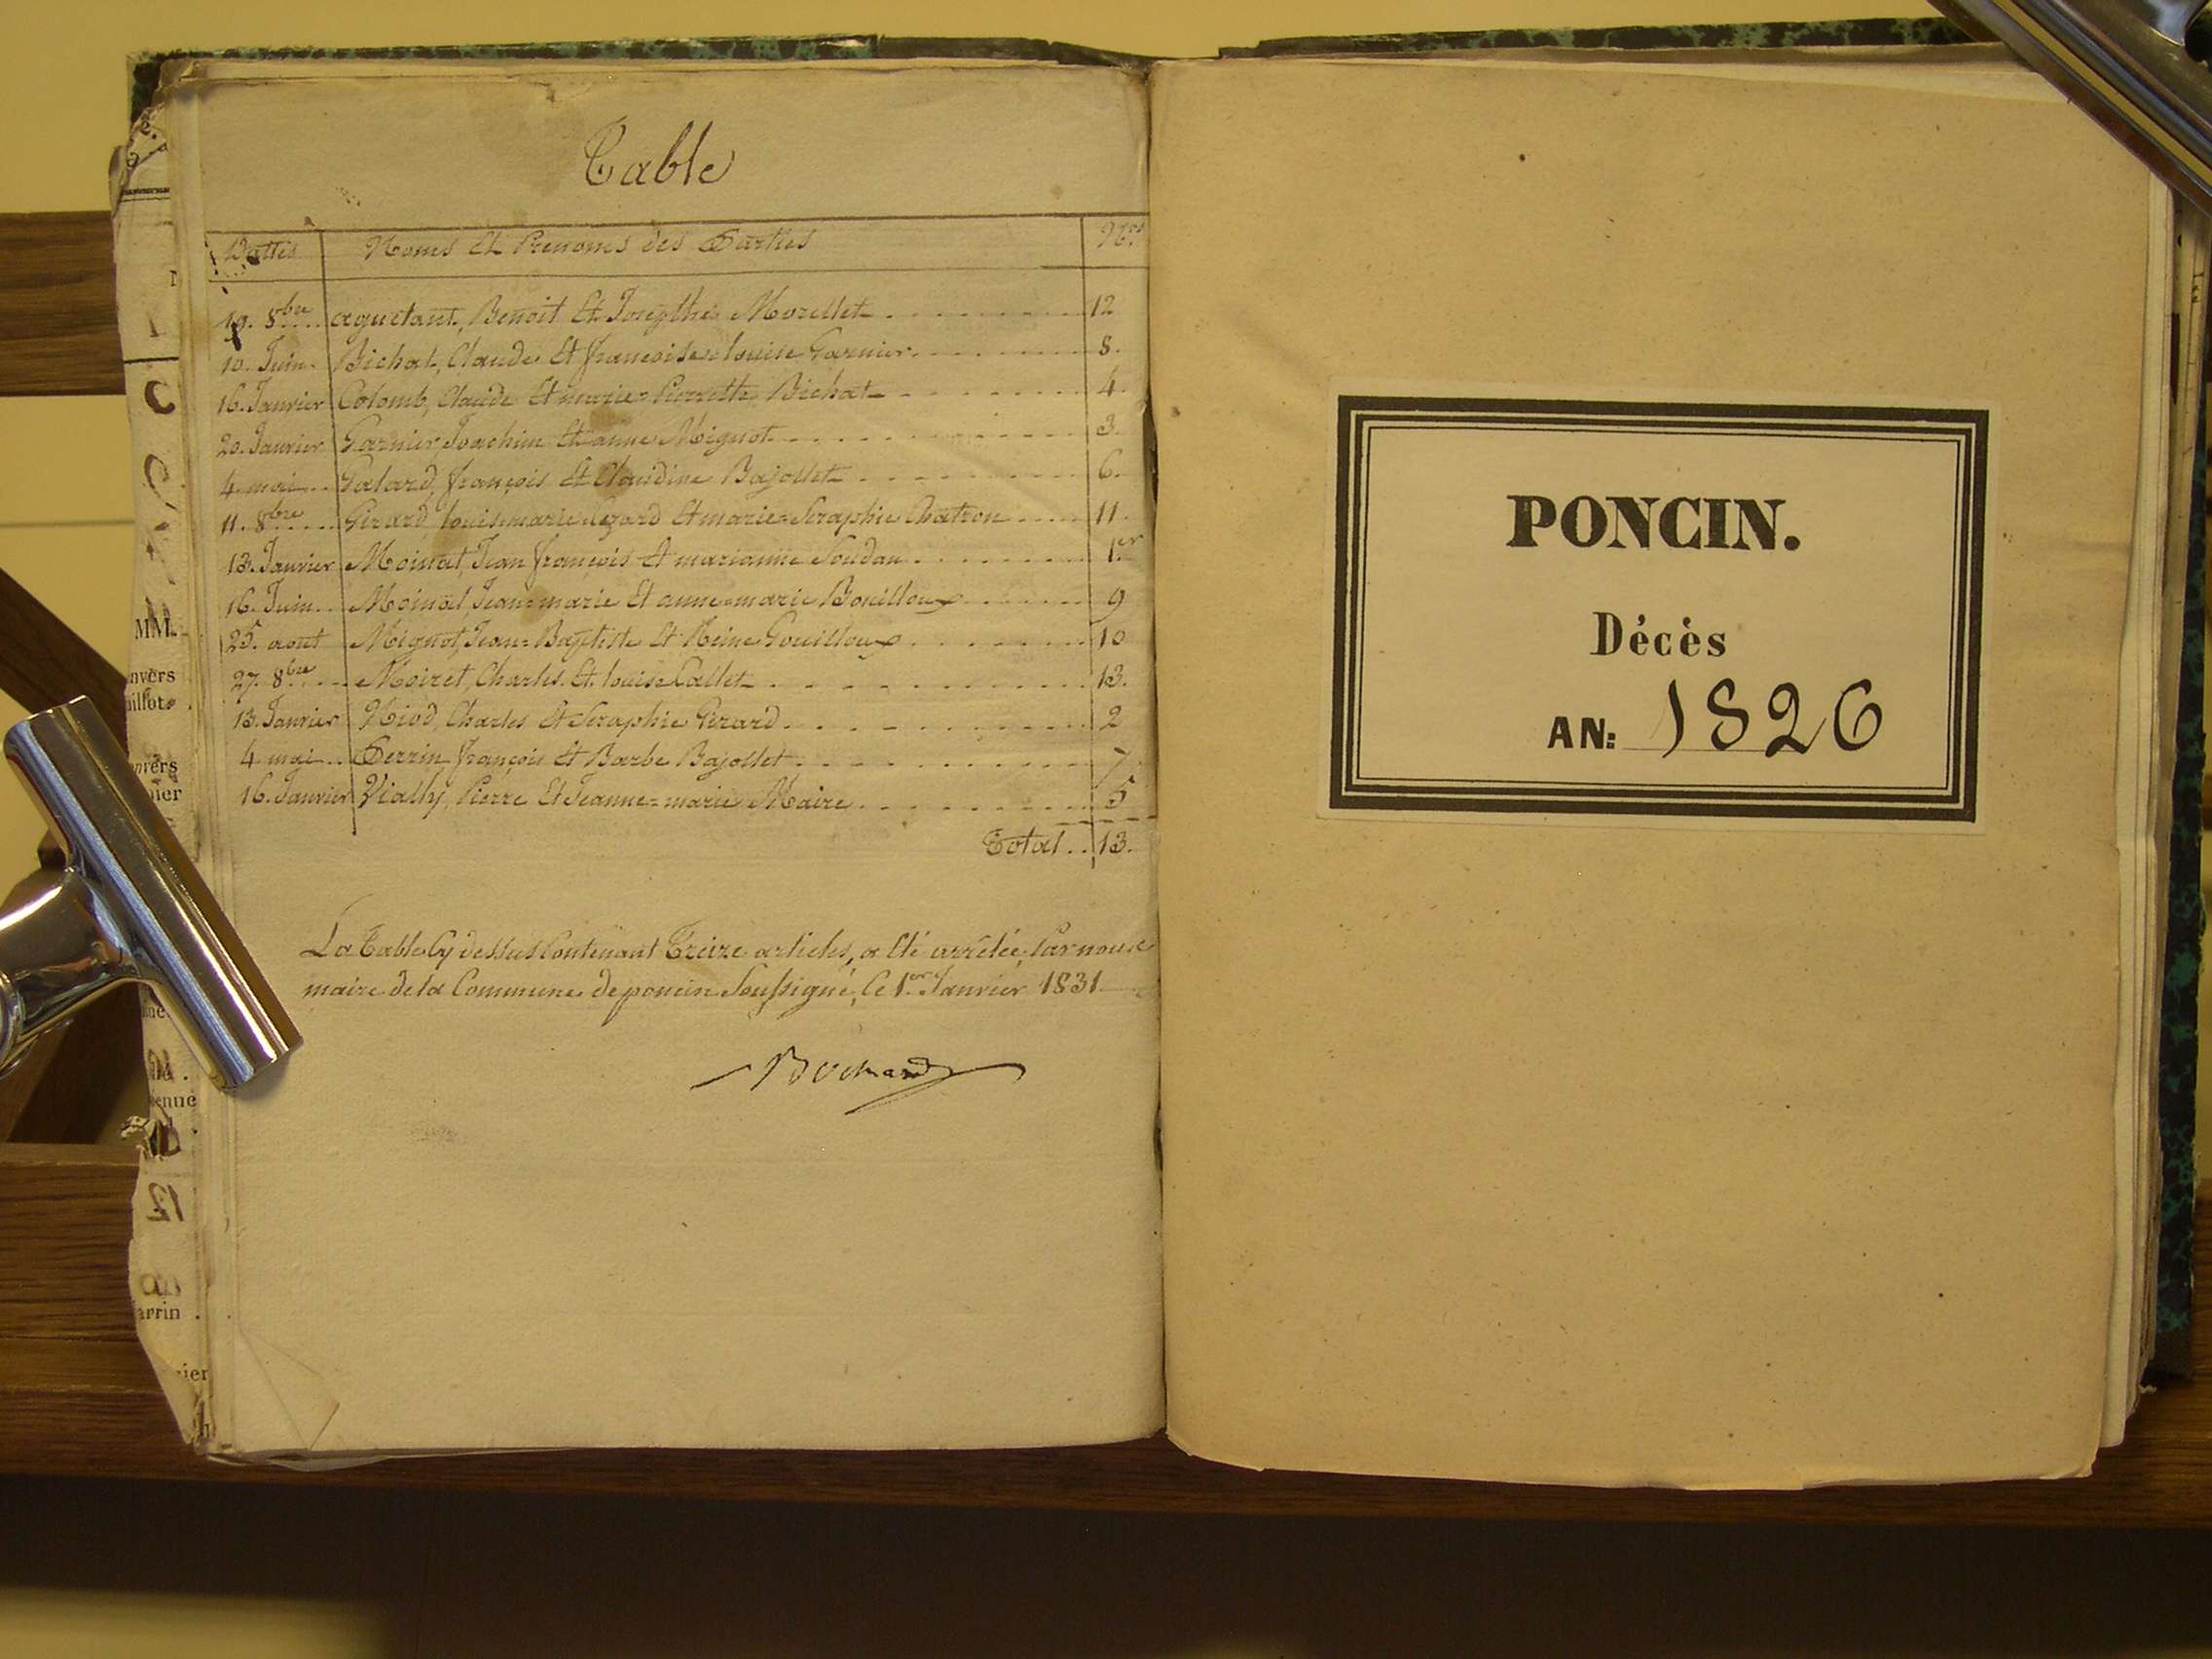 Table
Dattes Noms Et Prenoms des Parties Nos
19. 8bre aguetant, Benoit Et Josephte Morellet 12
10. Juin Bichat, Claude Et françoise louise Garnier 8.
16. Janvier Colomb, Claude Et marie=Pierrette Bichat 4.
20. Janvier Garnier Joachim Et anne Mignot 3.
4. mai Galard, françois Et Claudine Bajollet 6.
11. 8bre Girard, louis marie Et marie=Seraphie Chatron 11.
13. Janvier Moinat, Jean françois Et marianne Soudan 1.er
16. Juin Moinat, Jean=marie Et anne=marie Bouilloux 9
25. aout Mignot, Jean=Baptiste Et Reine Gouilloux 10
27. 8bre Moiret, Charles Et louise Callet 13.
13. Janvier Niod, Charles Et Seraphie Girard 2
4. mai Perrin françois Et Barbe Bajollet 7.
16. Janvier Vially, Pierre Et Jeanne=marie Maire 5
Total 13.
La Table Cy dessus Contenant Treize articles, a Eté arrêtée, Par nous
maire de la Commune de poncin Soussigné, le 1er Janvier 1831
Bochard
PONCIN.
Décès
AN: 1826
MM.
nvers
nvers
12
enne